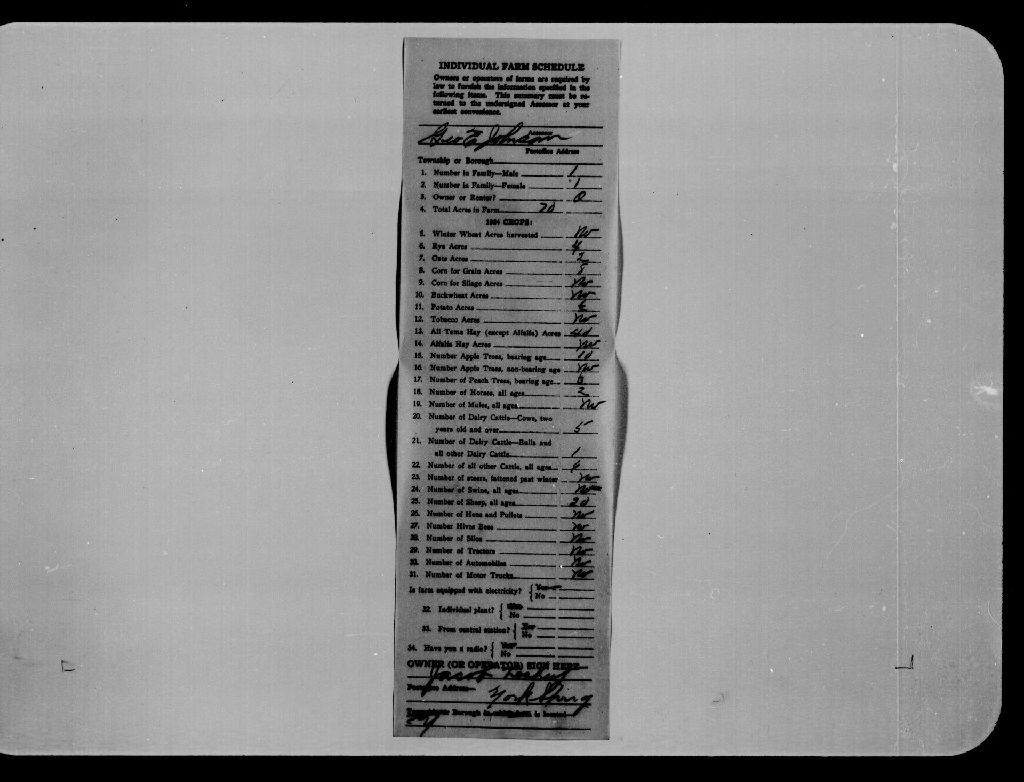 INDIVIDUAL FARM SCHEDULE
Owners or operators of farms are required by
law to furnish the information specified in the
following items. This summary must be re-
turned to the undersigned Assessor at your
earliest convenience.
Geo E Johnson
Assessor
Postoffice Address
Township or Borough
1. Number in Family—Male 1
2. Number in Family—Female 1
3. Owner or Renter? O
4. Total Acres in Farm 70
1924 CROPS:
5. Winter Wheat Acres harvested No
6. Rye Acres 4
7. Oats Acres
8. Corn for Grain Acres
9. Corn for Silage Acres No
10. Buckwheat Acres No
11. Potato Acres
12. Tobacco Acres No
13. All Tame Hay (except Alfalfa) Acres
14. Alfalfa Hay Acres No
15. Number Apple Trees, bearing age 10
16. Number Apple Trees, non-bearing age No
17. Number of Peach Trees, bearing age
18. Number of Horses, all ages 2
19. Number of Mules, all ages No
20. Number of Dairy Cattle—Cows, two
years old and over 5
21. Number of Dairy Cattle—Bulls and
all other Dairy Cattle 1
22. Number of all other Cattle, all ages
23. Number of steers, fattened past winter No
24. Number of Swine, all ages No
25. Number of Sheep, all ages 20
26. Number of Hens and Pullets No
27. Number Hives Bees No
28. Number of Silos No
29. Number of Tractors No
30. Number of Automobiles No
31. Number of Motor Trucks No
Is farm equipped with electricity? Yes
No
32. Individual plant? Yes
No
33. From central station? Yes
No
34. Have you a radio? Yes
No
OWNER (OR OPERATOR) SIGN HERE
Jacob
Postoffice Address
York Spring
Borough in is located